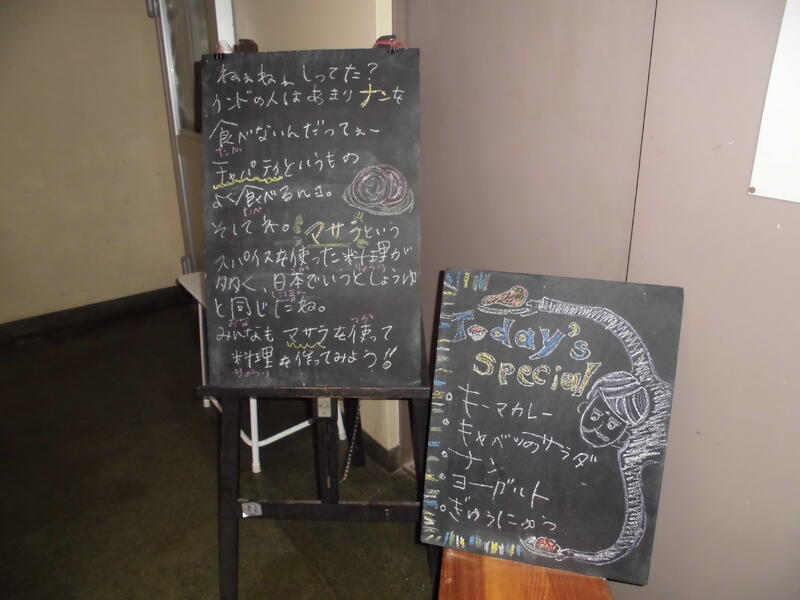 ねぇねぇしってた?
インドの人はあまりナンを
食べないんだってぇー
たべ
チャパティというもの
よく食べるんヨ。
たべ
そしてネ。マサラという
スパイスを使った料理が
多く、日本でいうとしょうゆ
と同じだね。
おな
つか
みんなもマサラを使って
料理を作ってみよう!!
りょうり
Today's
Special
キーマカレー
キャベツのサラダ
ナン
ヨーグルト
ぎゅうにゅう